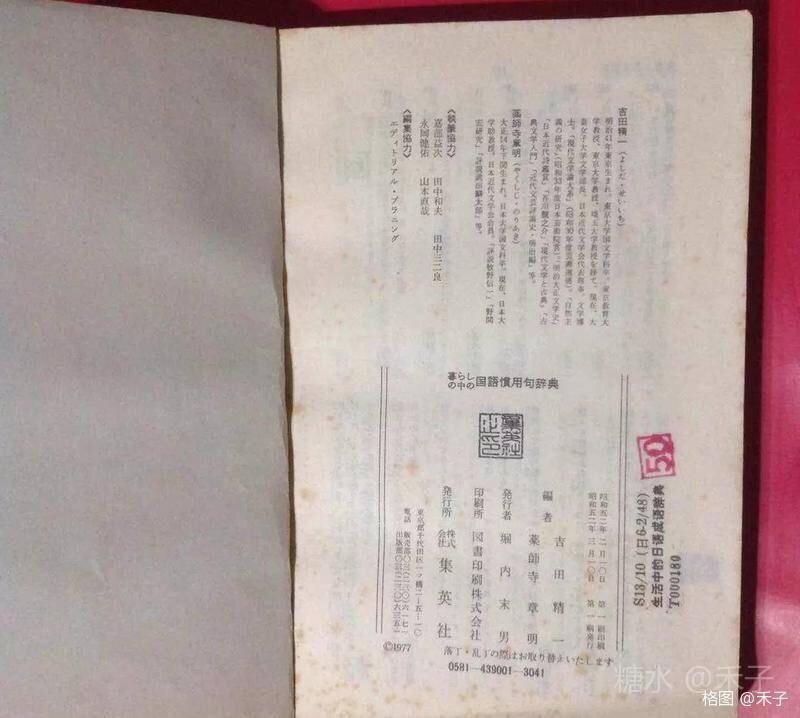 吉田精一（よしだ・せいいち）
明治41年東京生まれ。東京大学国文学科卒。東京教育大
学教授、東京大学教授、埼玉大学教授を経て、現在、大
妻女子大学文学部長。日本近代文学会代表理事。文学博
士。「現代文学論大系」（昭和30年度毎日
義の研究」（昭和33年度日本芸術院賞）「明治大正文学史」
「日本近代詩鑑賞」「芥川龍之介」「現代文学と古典」「古
典文学入門」「近代文芸評論史・明治編」等。
薬師寺章明（やくしじ・のりあき）
大正14年下関生まれ。日本大学国文科卒。現在、日本大
学助教授。日本近代文学会会員。「評説牧野信一」「野間
宏研究」「評説武田麟太郎」等。
〈執筆協力〉
嘉部益次　田中和夫　田中三二良
永岡健佑　山本直哉
〈編集協力〉
エディトリアル・プラニング
暮らしの中の国語慣用句辞典
集英社之印
昭和五二年二月一〇日　第一刷印刷
昭和五二年三月一〇日　第一刷発行
編者　吉田精一
薬師寺章明
発行者　堀内末男
印刷所　図書印刷株式会社
発行所　株式会社　集英社
東京都千代田区一ッ橋二—五—一〇
電話　販売部〇三(二三〇)六一七一
出版部〇三(二三〇)六三五一
©1977
落丁・乱丁の際はお取り替えいたします
0581—439001—3041
50
S13/10 (日6-2/48)
生活中的日语成语辞典
T000180
糖水 @禾子
格图 @禾子